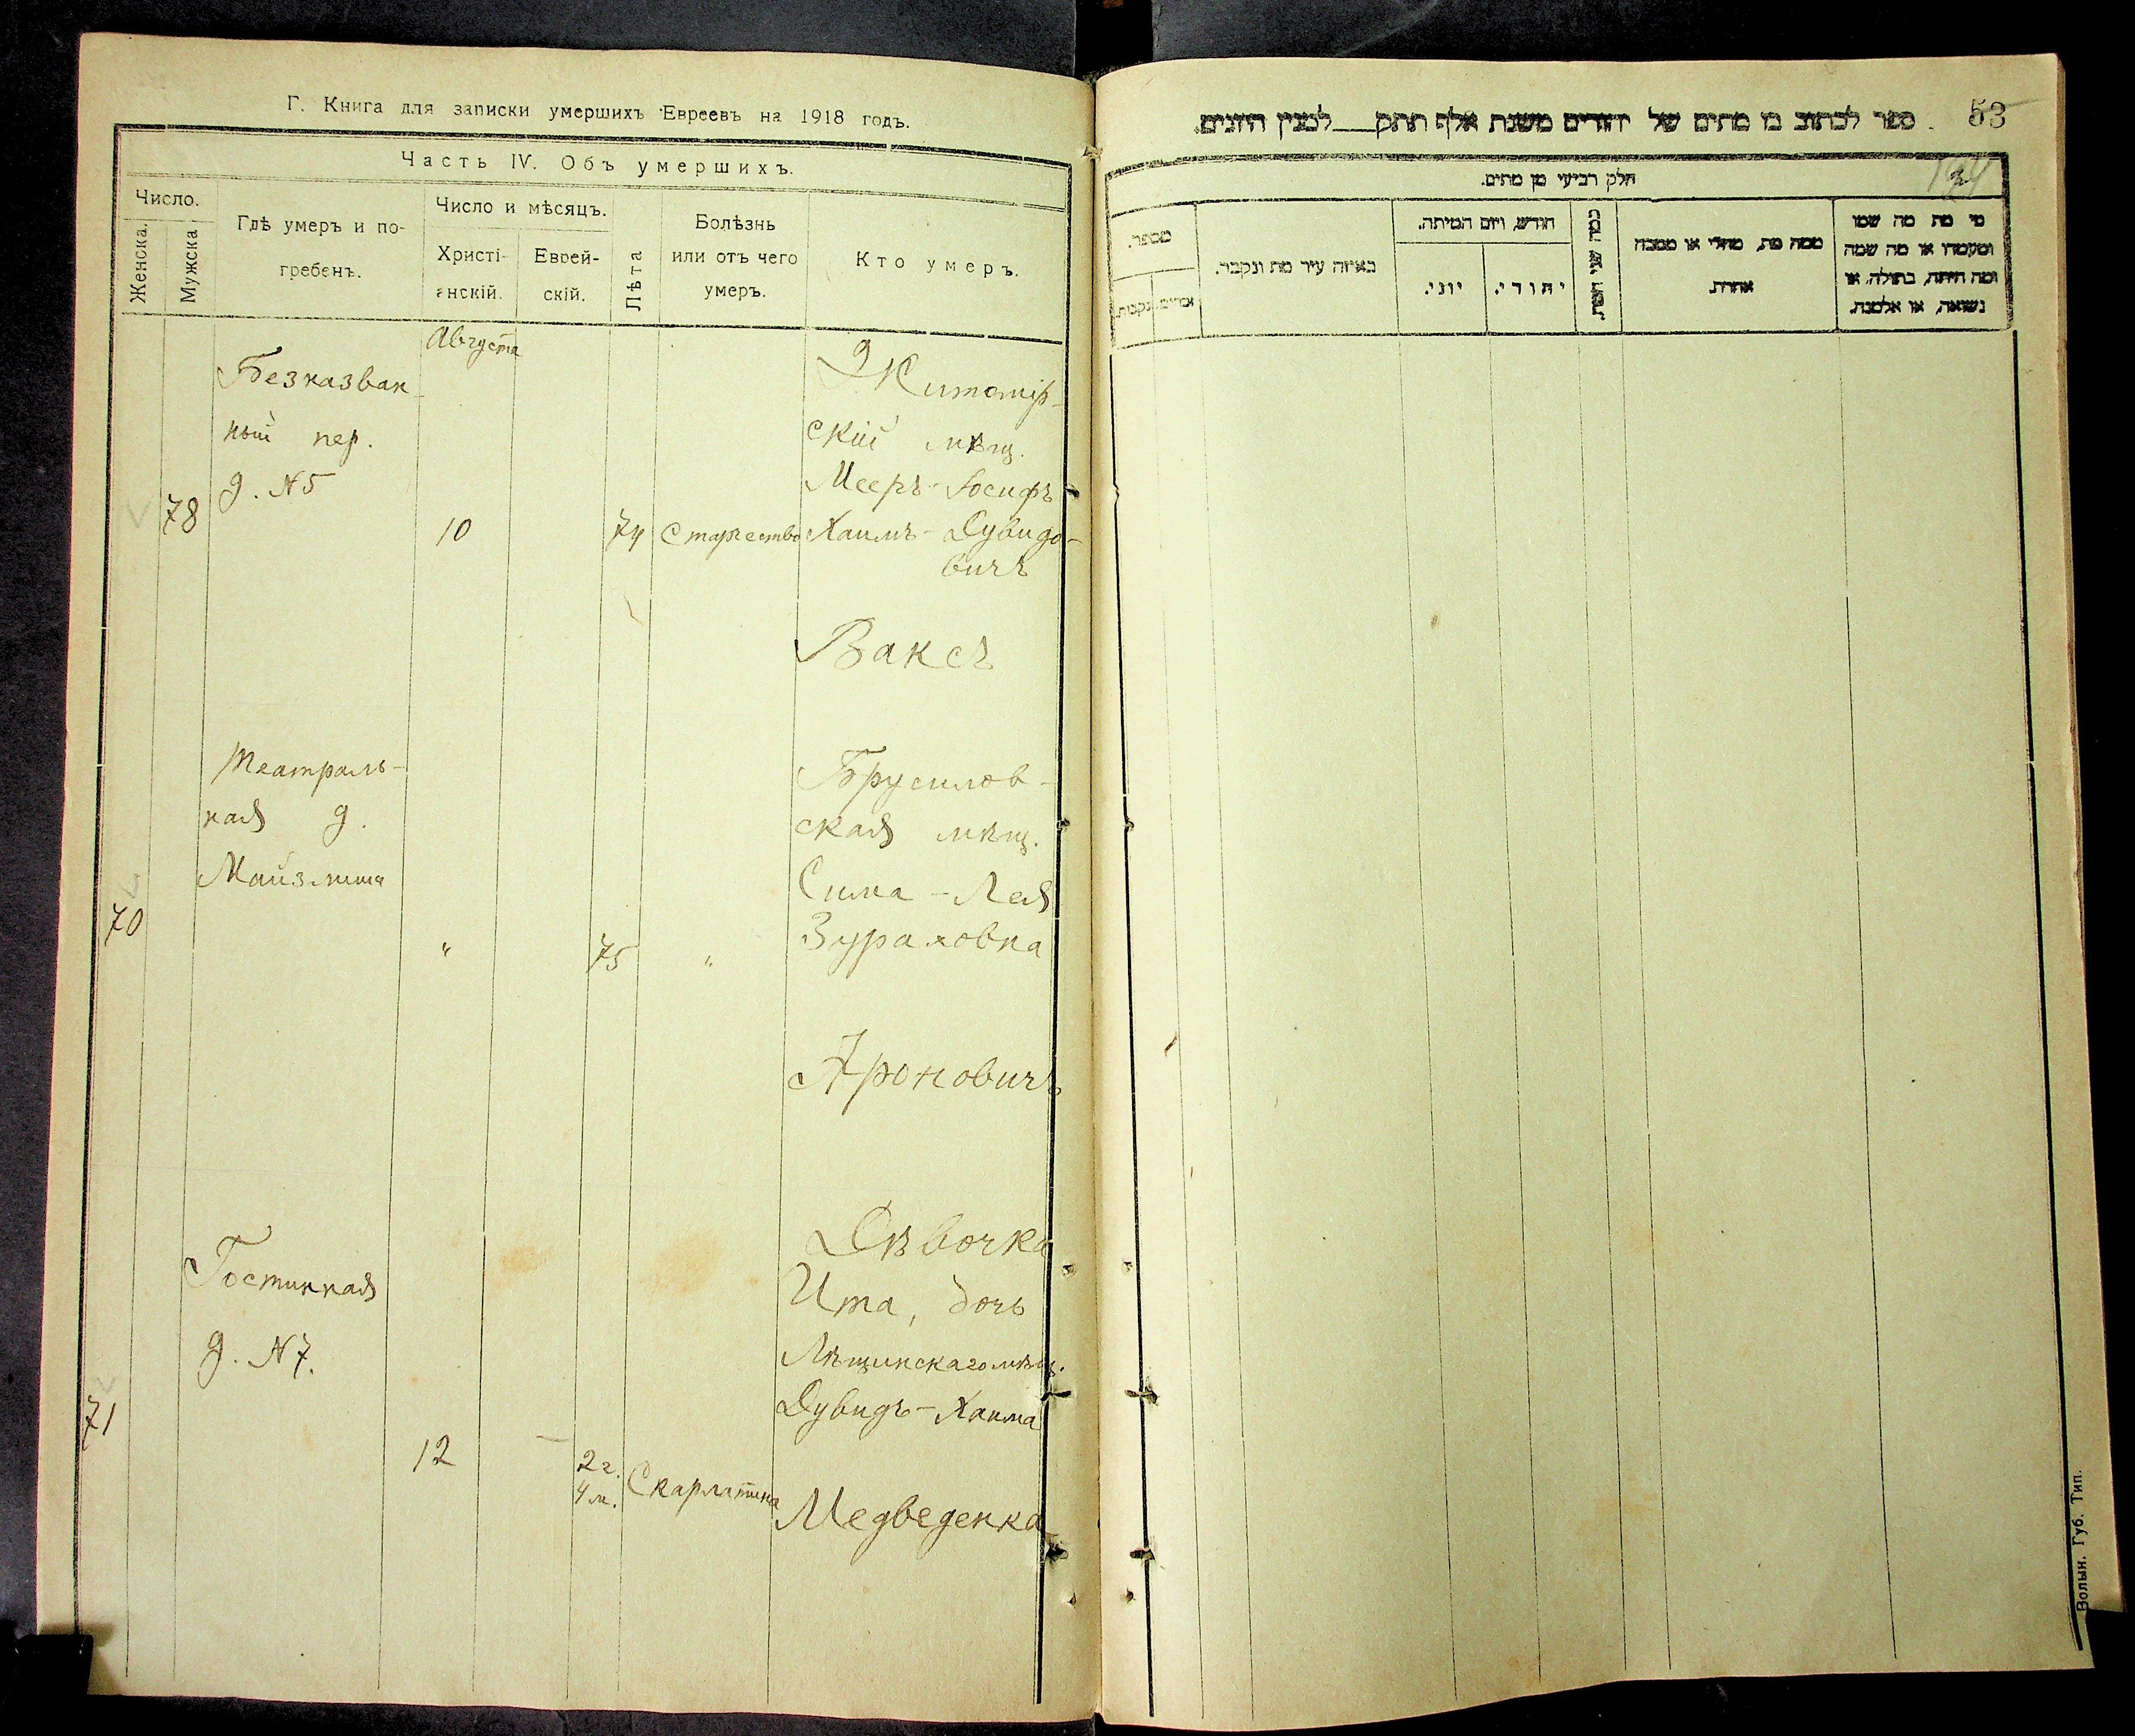 Г. Книга для записки умершихъ Евреевъ на 1918 годъ.
Часть IV. Объ умершихъ.
Число.
Женска.
Мужска
Гдѣ умеръ и по-
гребенъ.
Число и мѣсяцъ.
Христі-
анскій.
Еврей-
скій.
Лѣта
Болѣзнь
или отъ чего
умеръ.
Кто умеръ.
Августа
78
Безназван
ный пер.
д. №5
10
74
Старчество
Житомір-
скій мѣщ.
Мееръ-Іосифъ
Хаимъ-Дувидо-
вичъ
Ваксъ
70
Театраль-
ная д.
"
75
"
Брусилов-
ская мѣщ.
Сима-Лея
Зураховна
Ароновичъ
71
Гостинная
д. №7.
12
2 г.
4 м.
Скарлатина
Дѣвочка
Ита, дочь
Лѣщинскаго мѣщ.
Дувидъ-Хаима
Медведенка
53
ספר לכתוב בו מתים של יהודים משנת אלף תתק___למנין היונים.
חלק רביעי מן מתים.
מספר.
זכרים
נקבות.
באיזה עיר מת ונקבר.
חודש, ויום המיתה.
יוני.
יהודי.
כמה שני המת.
ממה מת, מחלי או מסבה
אחרת.
מי מת מה שמו
ומעמדו או מה שמה
ומה היתה, בתולה, או
נשואה, או אלמנה.
Волын. Губ. Тип.